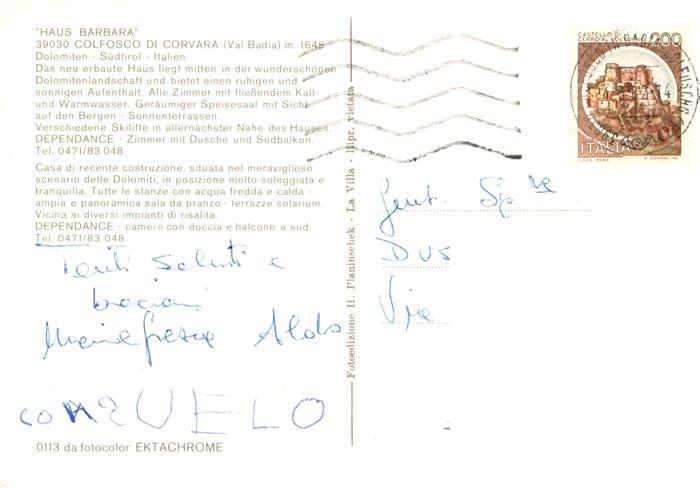 "HAUS BARBARA"
39030 COLFOSCO DI CORVARA (Val Badia) m. 1645
Dolomiten - Südtirol - Italien
Das neu erbaute Haus liegt mitten in der wunderschönen
Dolomitenlandschaft und bietet einen ruhigen und
sonnigen Aufenthalt. Alle Zimmer mit fließendem Kalt-
und Warmwasser. Geräumiger Speisesaal mit Sicht
auf den Bergen - Sonnenterrassen.
Verschiedene Skilifte in allernächster Nähe des Hauses.
DEPENDANCE - Zimmer mit Dusche und Südbalkon.
Tel. 0471/83 048
Casa di recente costruzione, situata nel meraviglioso
scenario delle Dolomiti, in posizione molto soleggiata e
tranquilla. Tutte le stanze con acqua fredda e calda -
ampia e panoramica sala da pranzo - terrazze solarium.
Vicina ai diversi impianti di risalita.
DEPENDANCE - camere con doccia e balcone a sud.
Tel. 0471/83 048
Tanti saluti e
bacioni
Mariateresa Aldo
CONSUELO
0113 da fotocolor EKTACHROME
Fotoedizione H. Planinschek - La Villa - Ripr. vietata
CASTELLO DI
CERRO AL VOLTURNO
200
ITALIA
Gent. Sig.
DUS
Via